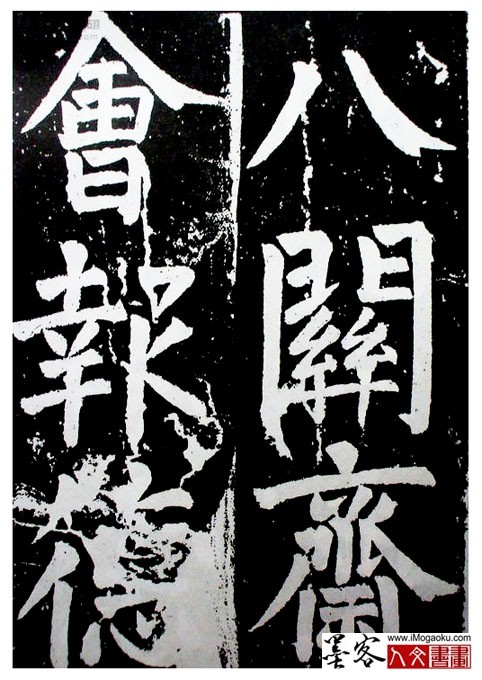 八關齋
會報德
www.iMogaoku.com
墨客
人文書畫